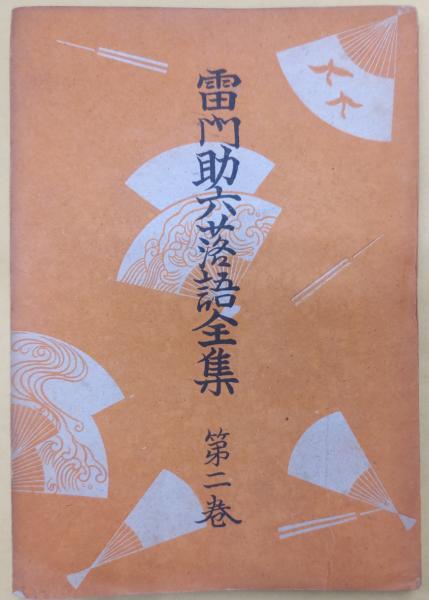 雷門助六落語全集
第二巻